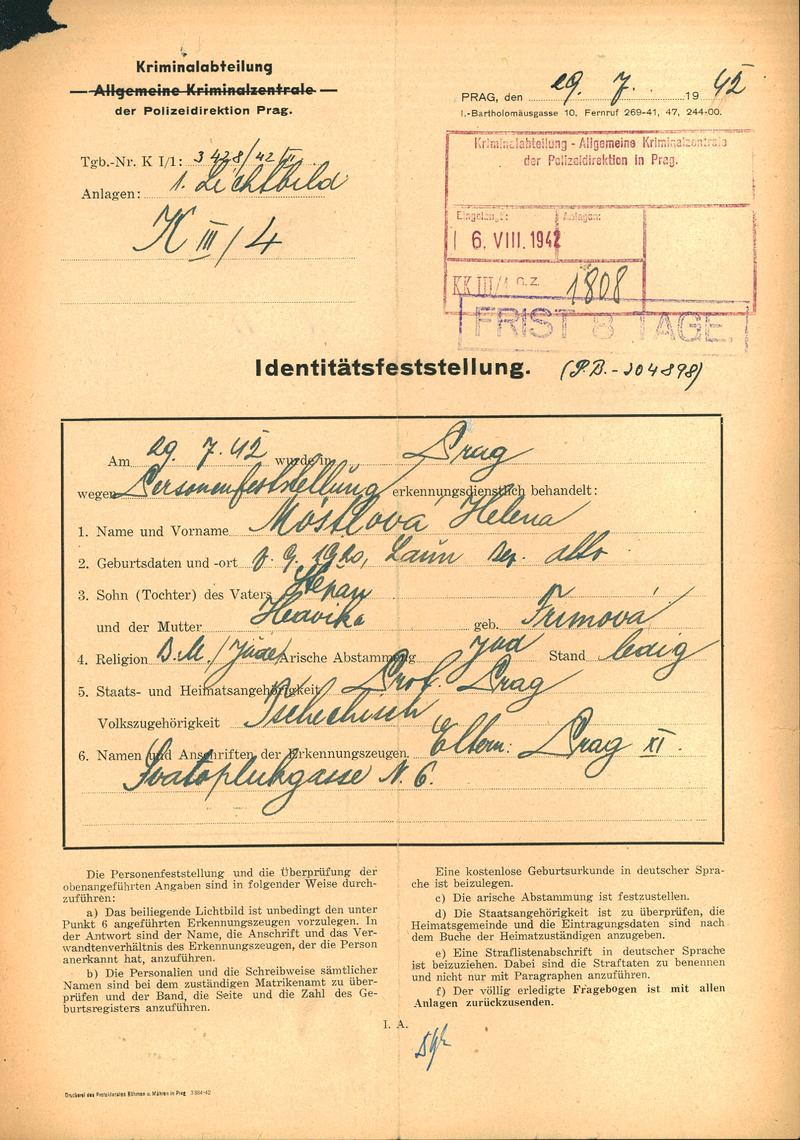 Kriminalabteilung
Allgemeine Kriminalzentrale
der Polizeidirektion Prag.
PRAG, den 29. 7. 1942
I.-Bartholomäusgasse 10, Fernruf 269-41, 47, 244-00.
Tgb.-Nr. K I/1: 3428/42/II
Anlagen: 1. Lichtbild
K III/4
Kriminalabteilung - Allgemeine Kriminalzentrale
der Polizeidirektion in Prag.
Eingelangt: Anlagen:
6. VIII. 1942
KK III/4 n. z. 1808
FRIST 8 TAGE.
Identitätsfeststellung. (P.B.-204898)
Am 29. 7. 42 wurde in Prag
wegen Personenfeststellung erkennungsdienstlich behandelt:
1. Name und Vorname Móstlová Helena
2. Geburtsdaten und -ort 8. 9. 1920, Laun
3. Sohn (Tochter) des Vaters Štěpan
und der Mutter Hedvika geb. Frimová
4. Religion B.M./Jüde/ Arische Abstammung Jud Stand ledig
5. Staats- und Heimatsangehörigkeit Prot. Prag
Volkszugehörigkeit Tschechisch
6. Namen und Anschriften der Erkennungszeugen. Eltern: Prag XI.
Svatoplukgasse N. 6.
Die Personenfeststellung und die Überprüfung der
obenangeführten Angaben sind in folgender Weise durch-
zuführen:
a) Das beiliegende Lichtbild ist unbedingt den unter
Punkt 6 angeführten Erkennungszeugen vorzulegen. In
der Antwort sind der Name, die Anschrift und das Ver-
wandtenverhältnis des Erkennungszeugen, der die Person
anerkannt hat, anzuführen.
b) Die Personalien und die Schreibweise sämtlicher
Namen sind bei dem zuständigen Matrikenamt zu über-
prüfen und der Band, die Seite und die Zahl des Ge-
burtsregisters anzuführen.
Eine kostenlose Geburtsurkunde in deutscher Spra-
che ist beizulegen.
c) Die arische Abstammung ist festzustellen.
d) Die Staatsangehörigkeit ist zu überprüfen, die
Heimatsgemeinde und die Eintragungsdaten sind nach
dem Buche der Heimatzuständigen anzugeben.
e) Eine Straflistenabschrift in deutscher Sprache
ist beizuziehen. Dabei sind die Straftaten zu benennen
und nicht nur mit Paragraphen anzuführen.
f) Der völlig erledigte Fragebogen ist mit allen
Anlagen zurückzusenden.
I. A.
Druckerei des Protektorates Böhmen u. Mähren in Prag 3884-42